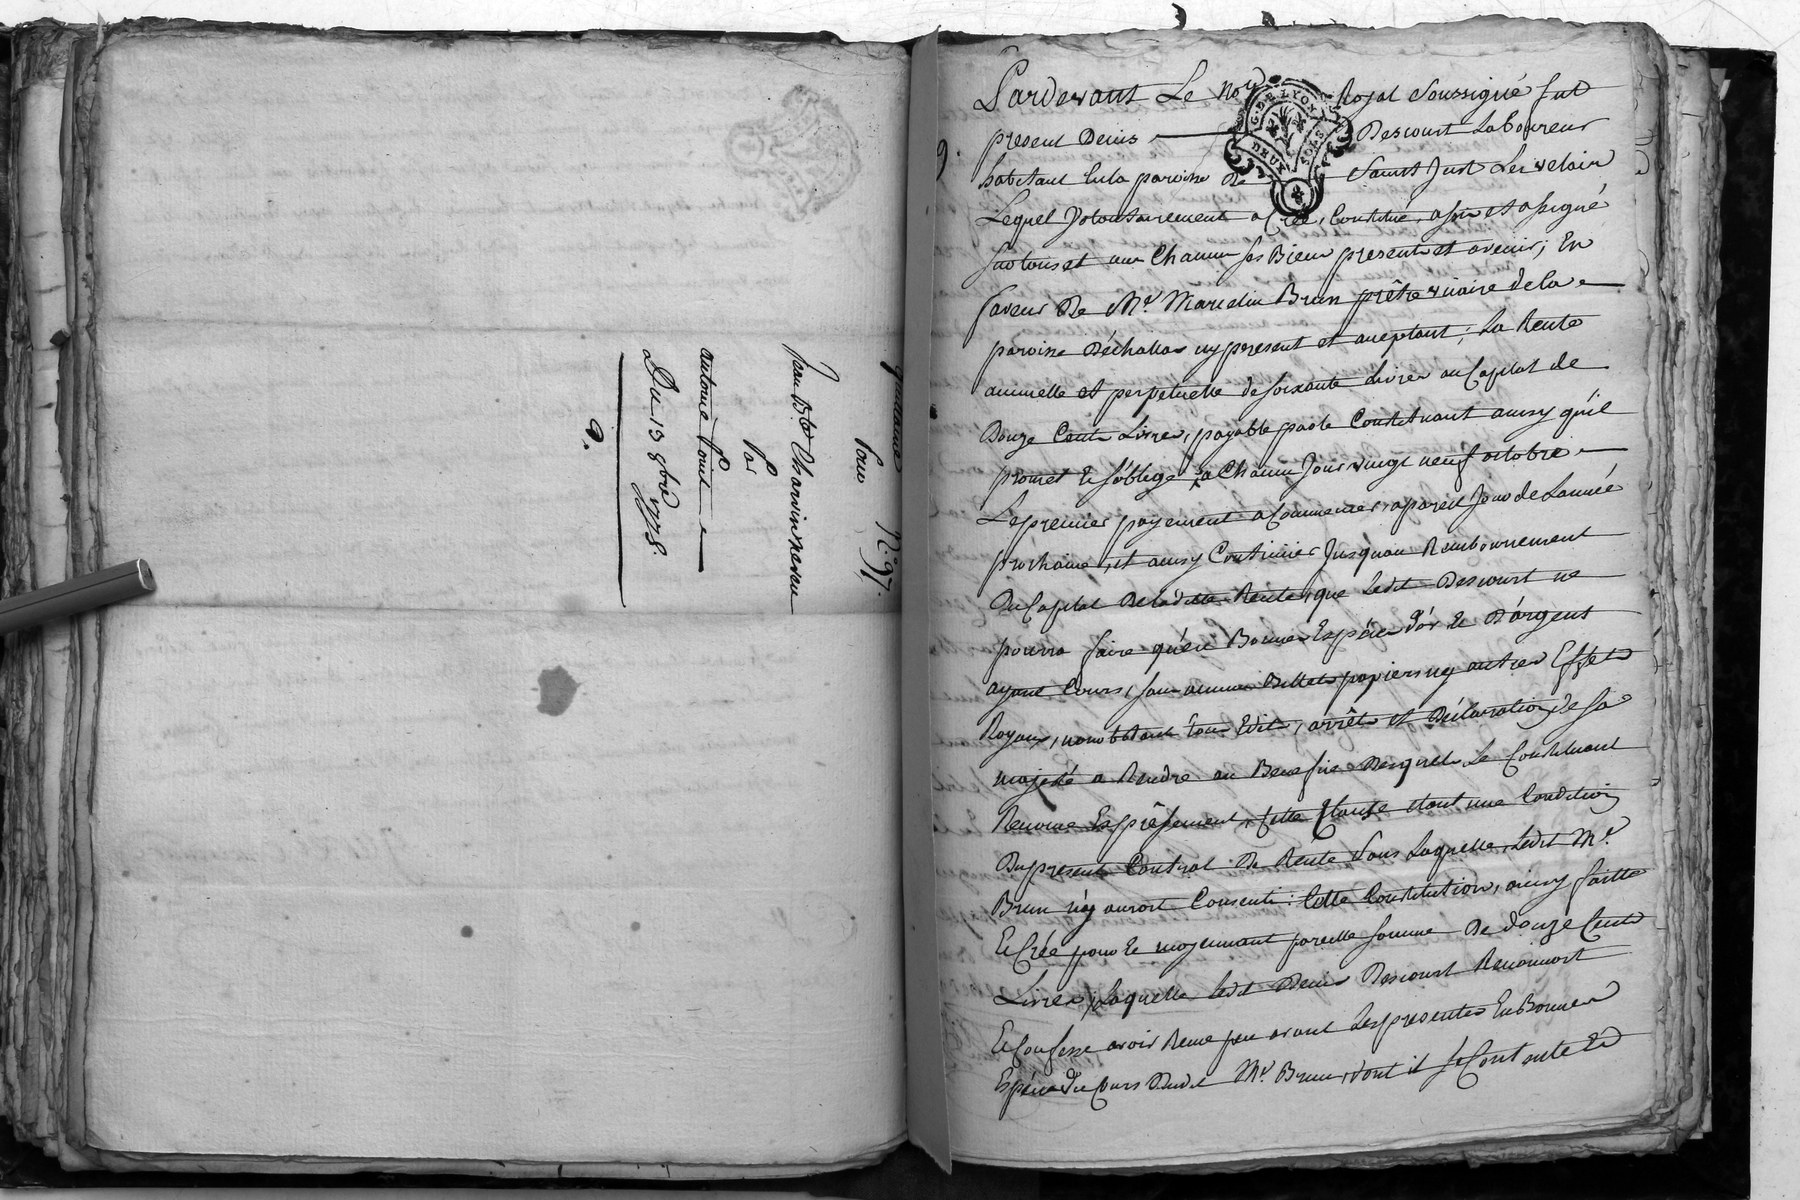 quittance N.° 97.
Pour
Jean B.te Charvin neveu
Par
antoine
Du 13 8bre 1778.
9.
Pardevant Le no.re Royal Soussigné fut
present Denis Descourt Laboureur
habitant en la paroisse de Saint Just Les velain
Lequel Volontairement a Créé, Constitué, assis et assigné
sur tous et un Chacun ses Biens presents et avenir; En
faveur De M.r Marcelin Brun prêtre vicaire de la
paroisse Déchallas icy present et aceptant; La Rente
annuelle et perpetuelle de soixante Livres au Capital de
Douze Cents Livres, payable par le Constituant ainsy qu'il
promet Et s'oblige a Chacun Jour vingt neuf octobre
Le premier payement a Commencer a pareil Jour de L'année
prochaine, et ainsy Continüer Jusquau Remboursement
Du Capital De Laditte Rente, que Ledit Descourt ne
pourra faire qu'en Bonnes Espéces d'ór Et D'argent
ayant Cours, sans aucuns Billets papiers ny autres Effets
Royaux, nonobstant tous Edits, arrêts et Déclarations de sa
majesté a Rendre au Benefice Desquels Le Constituant
Renonce Expréssement, Cette Clause étant une Condition
Du present Contrat De Rente Sans Laquelle Ledit M.r
Brun n'y auroit Consenti: Cette Constitution, ainsy faitte
Et Créé pour Et moyennant pareille somme De douze Cents
Livres, Laquelle Ledit Denis Descourt Reconnoit
Et Confesse avoir Recue peu avant Les presentes En Bonnes
Espéces du Cours Dudit M.r Brun, dont il se Contente Et
G. DE LYON
DEUX SOLS